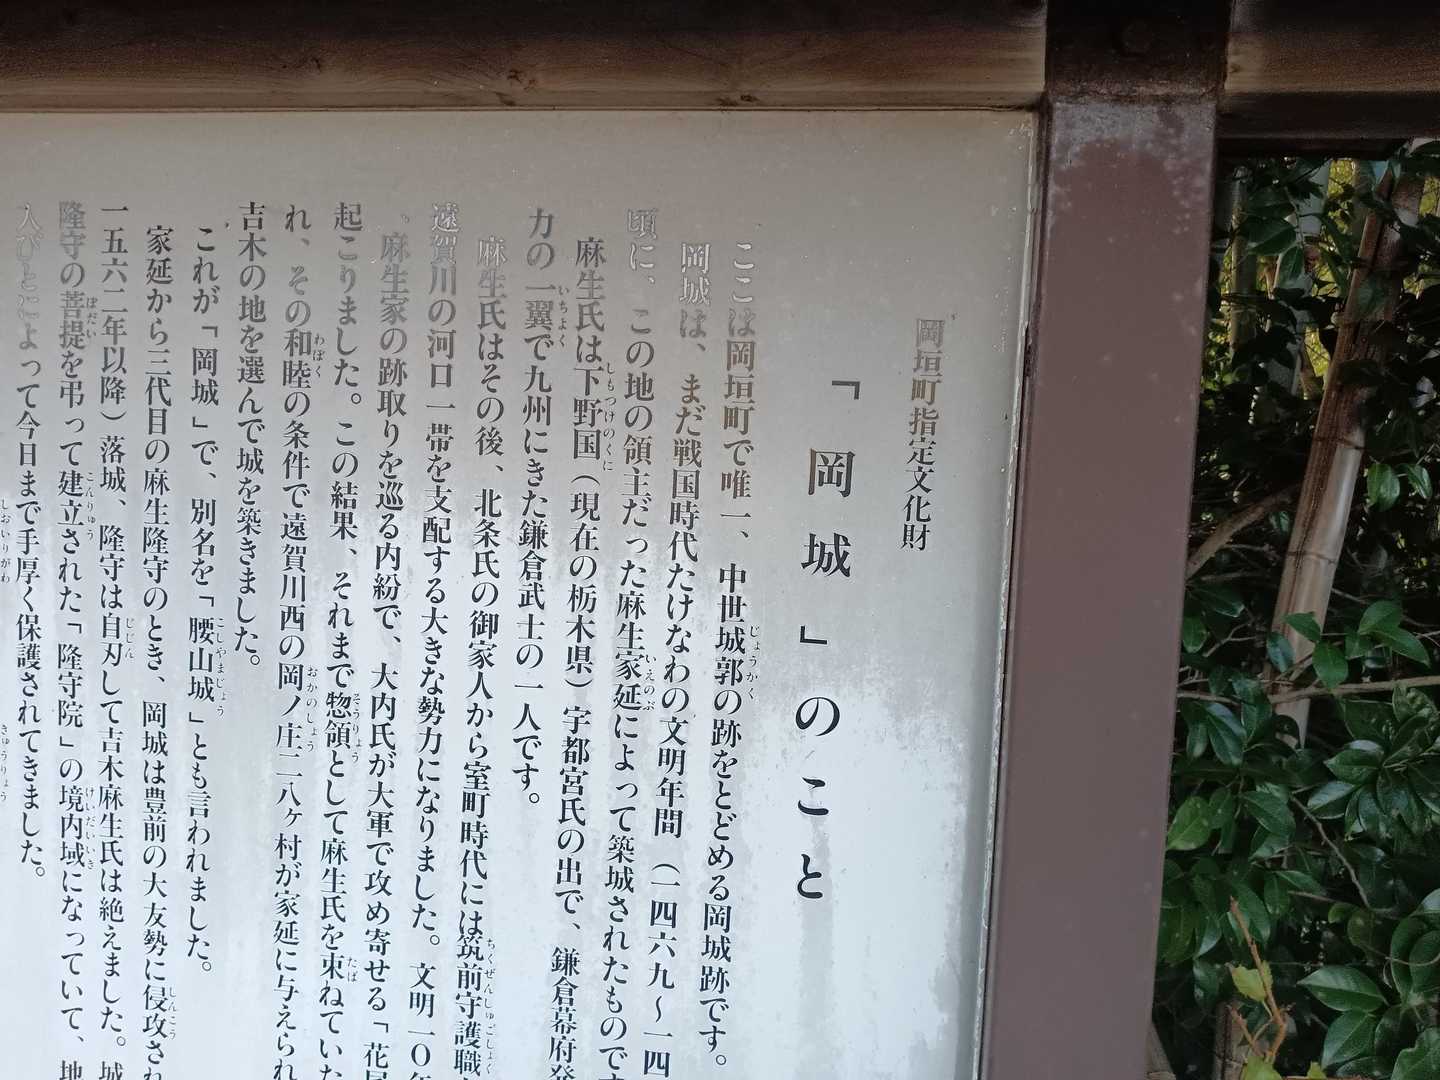 岡垣町指定文化財
「岡城」のこと
ここは岡垣町で唯一、中世城郭の跡をとどめる岡城跡です。
岡城は、まだ戦国時代たけなわの文明年間（一四六九〜一四
頃に、この地の領主だった麻生家延によって築城されたものです
麻生氏は下野国（現在の栃木県）宇都宮氏の出で、鎌倉幕府発
力の一翼で九州にきた鎌倉武士の一人です。
麻生氏はその後、北条氏の御家人から室町時代には筑前守護職
遠賀川の河口一帯を支配する大きな勢力になりました。文明一〇年
麻生家の跡取りを巡る内紛で、大内氏が大軍で攻め寄せる「花尾
起こりました。この結果、それまで惣領として麻生氏を束ねていた
れ、その和睦の条件で遠賀川西の岡ノ庄二八ヶ村が家延に与えられ
吉木の地を選んで城を築きました。
これが「岡城」で、別名を「腰山城」とも言われました。
家延から三代目の麻生隆守のとき、岡城は豊前の大友勢に侵攻され
一五六二年以降）落城、隆守は自刃して吉木麻生氏は絶えました。城
隆守の菩提を弔って建立された「隆守院」の境内域になっていて、地
人びとによって今日まで手厚く保護されてきました。
しおいりがわ
きゅうりょう